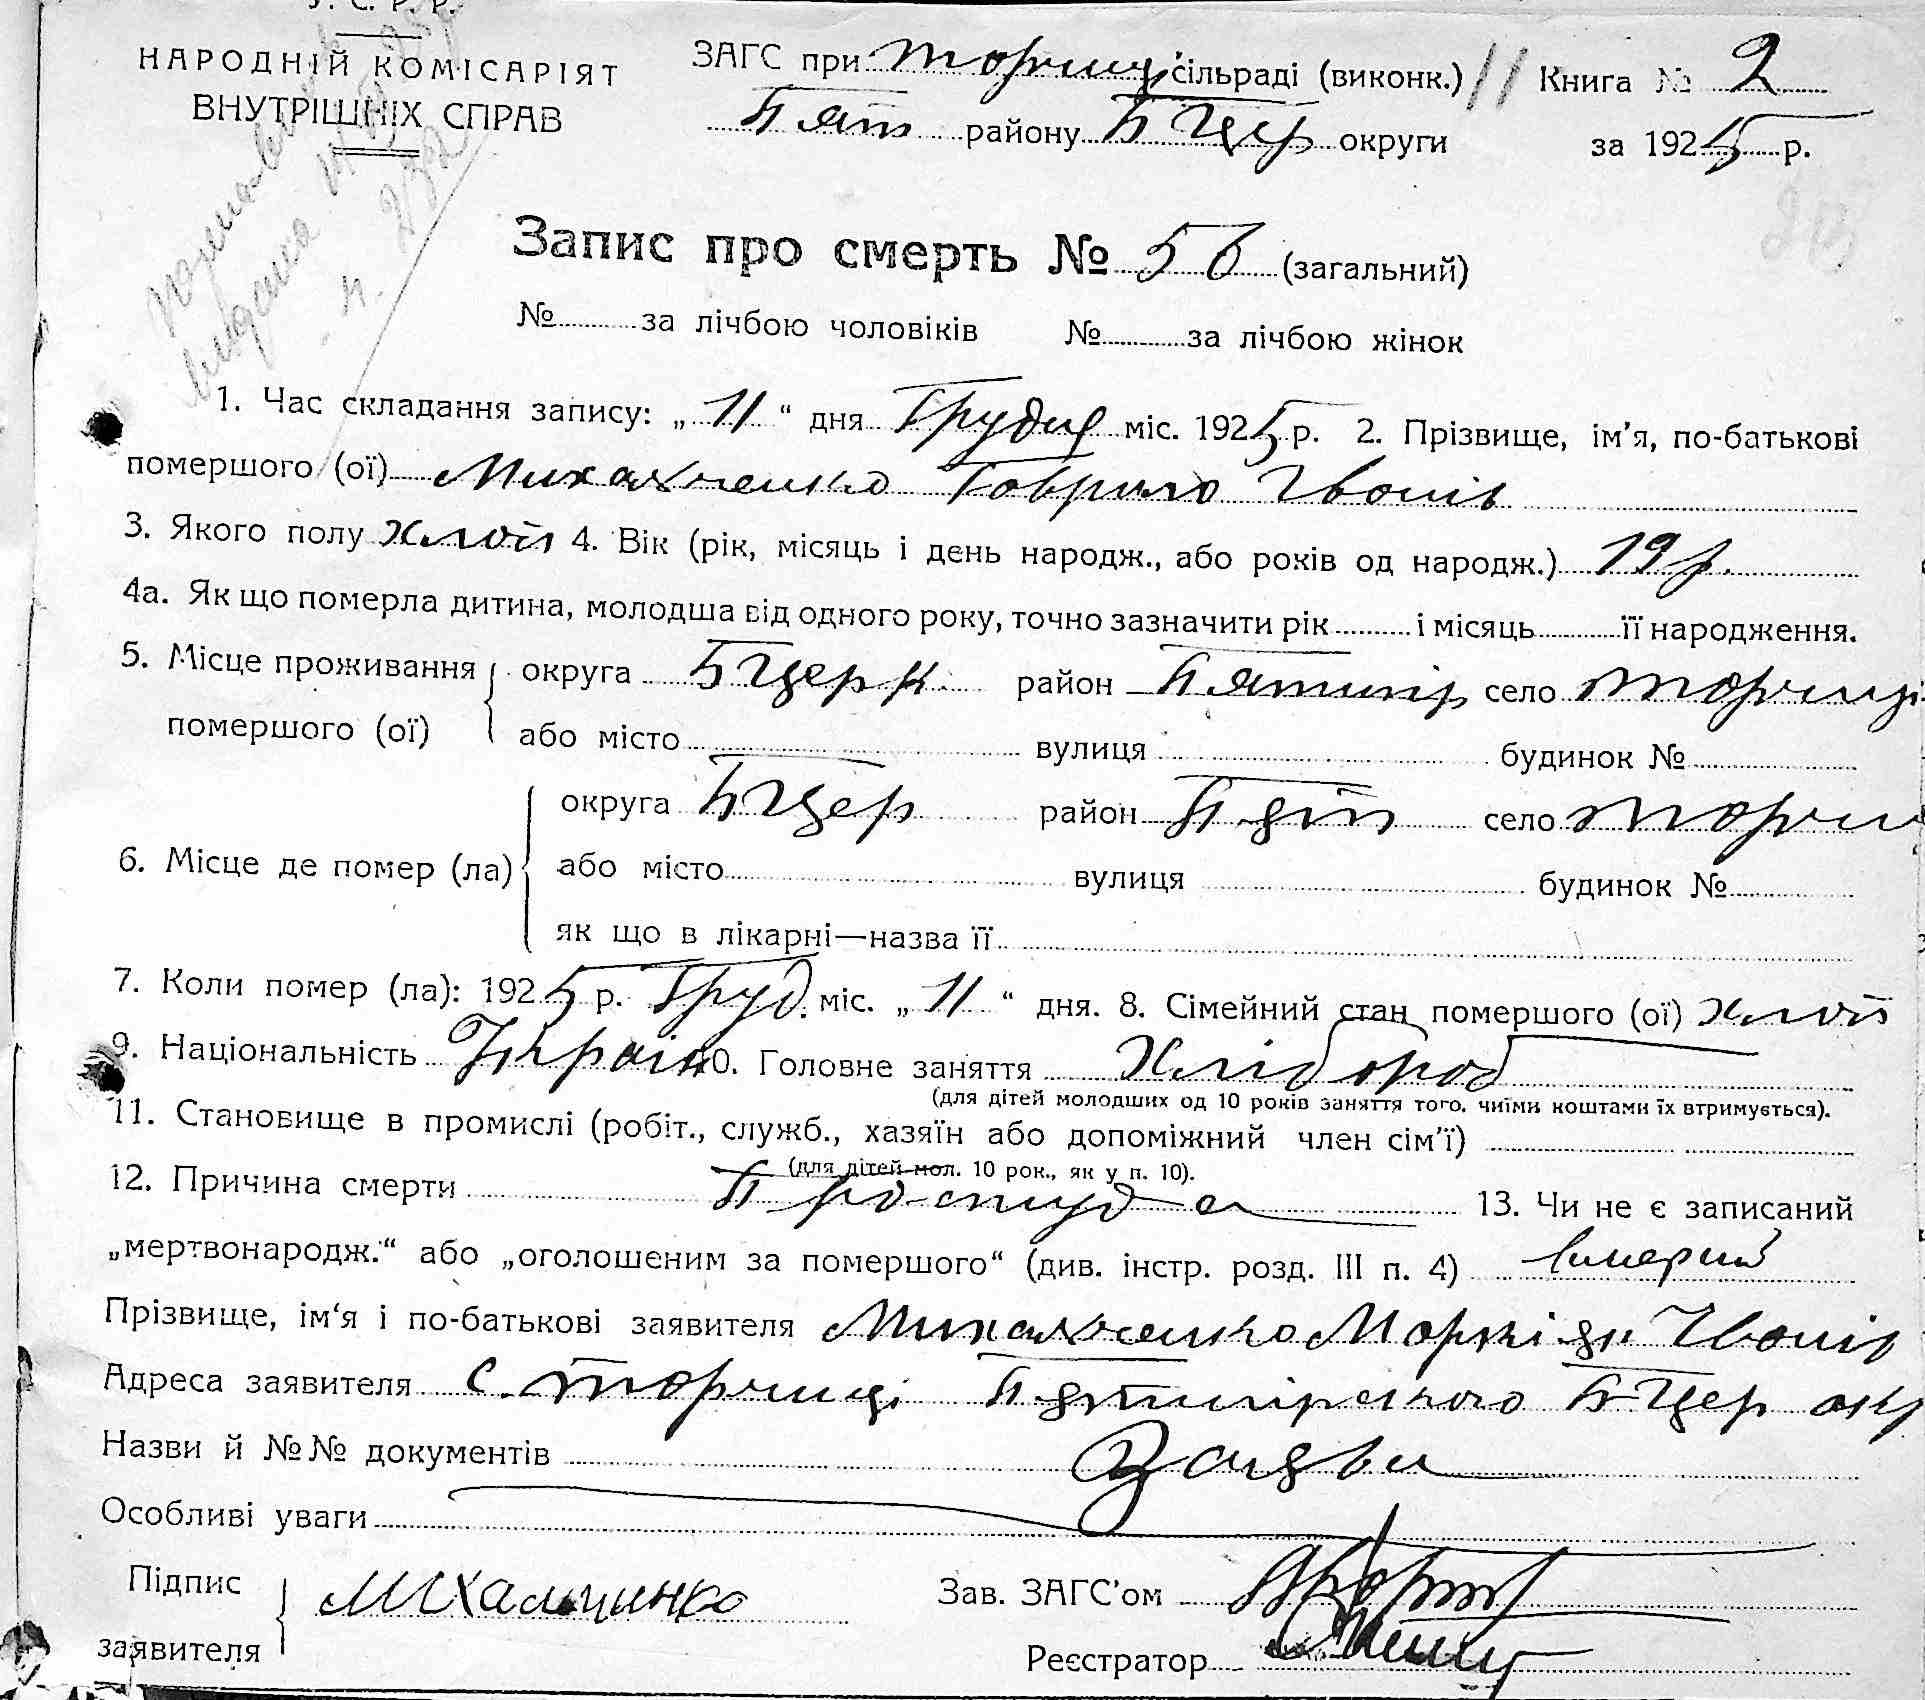 У. С. Р. Р.
НАРОДНІЙ КОМІСАРІЯТ
ВНУТРІШНІХ СПРАВ
ЗАГС при Торчиці сільраді (виконк.) 11 Книга № 2
Пят району БЦер округи за 1925 р.
Запис про смерть № 56 (загальний)
№ за лічбою чоловіків № за лічбою жінок
1. Час складання запису: „11“ дня Грудня міс. 1925 р. 2. Прізвище, ім'я, по-батькові
помершого (ої) Михальченко Гаврило Іванів
3. Якого полу 4. Вік (рік, місяць і день народж., або років од народж.) 19 р.
4а. Як що померла дитина, молодша від одного року, точно зазначити рік і місяць її народження.
5. Місце проживання округа БЦерк район Пятигір село Торчиці
помершого (ої) або місто вулиця будинок №
округа БЦер район Пят село Торчи
6. Місце де помер (ла) або місто вулиця будинок №
як що в лікарні—назва її
7. Коли помер (ла): 1925 р. Груд. міс. „11“ дня. 8. Сімейний стан помершого (ої)
9. Національність Україн 10. Головне заняття Хлібороб
(для дітей молодших од 10 років заняття того, чиїми коштами їх втримується).
11. Становище в промислі (робіт., служб., хазяїн або допоміжний член сім'ї)
(для дітей мол. 10 рок., як у п. 10).
12. Причина смерти Простуда 13. Чи не є записаний
„мертвонародж.“ або „оголошеним за помершого“ (див. інстр. розд. III п. 4)
Прізвище, ім'я і по-батькові заявителя Михальченко Маркіян Іванів
Адреса заявителя с. Торчиці Пятигірського БЦер окр
Назви й №№ документів Заява
Особливі уваги
Підпис заявителя Михальчинко
Зав. ЗАГС'ом
Реєстратор